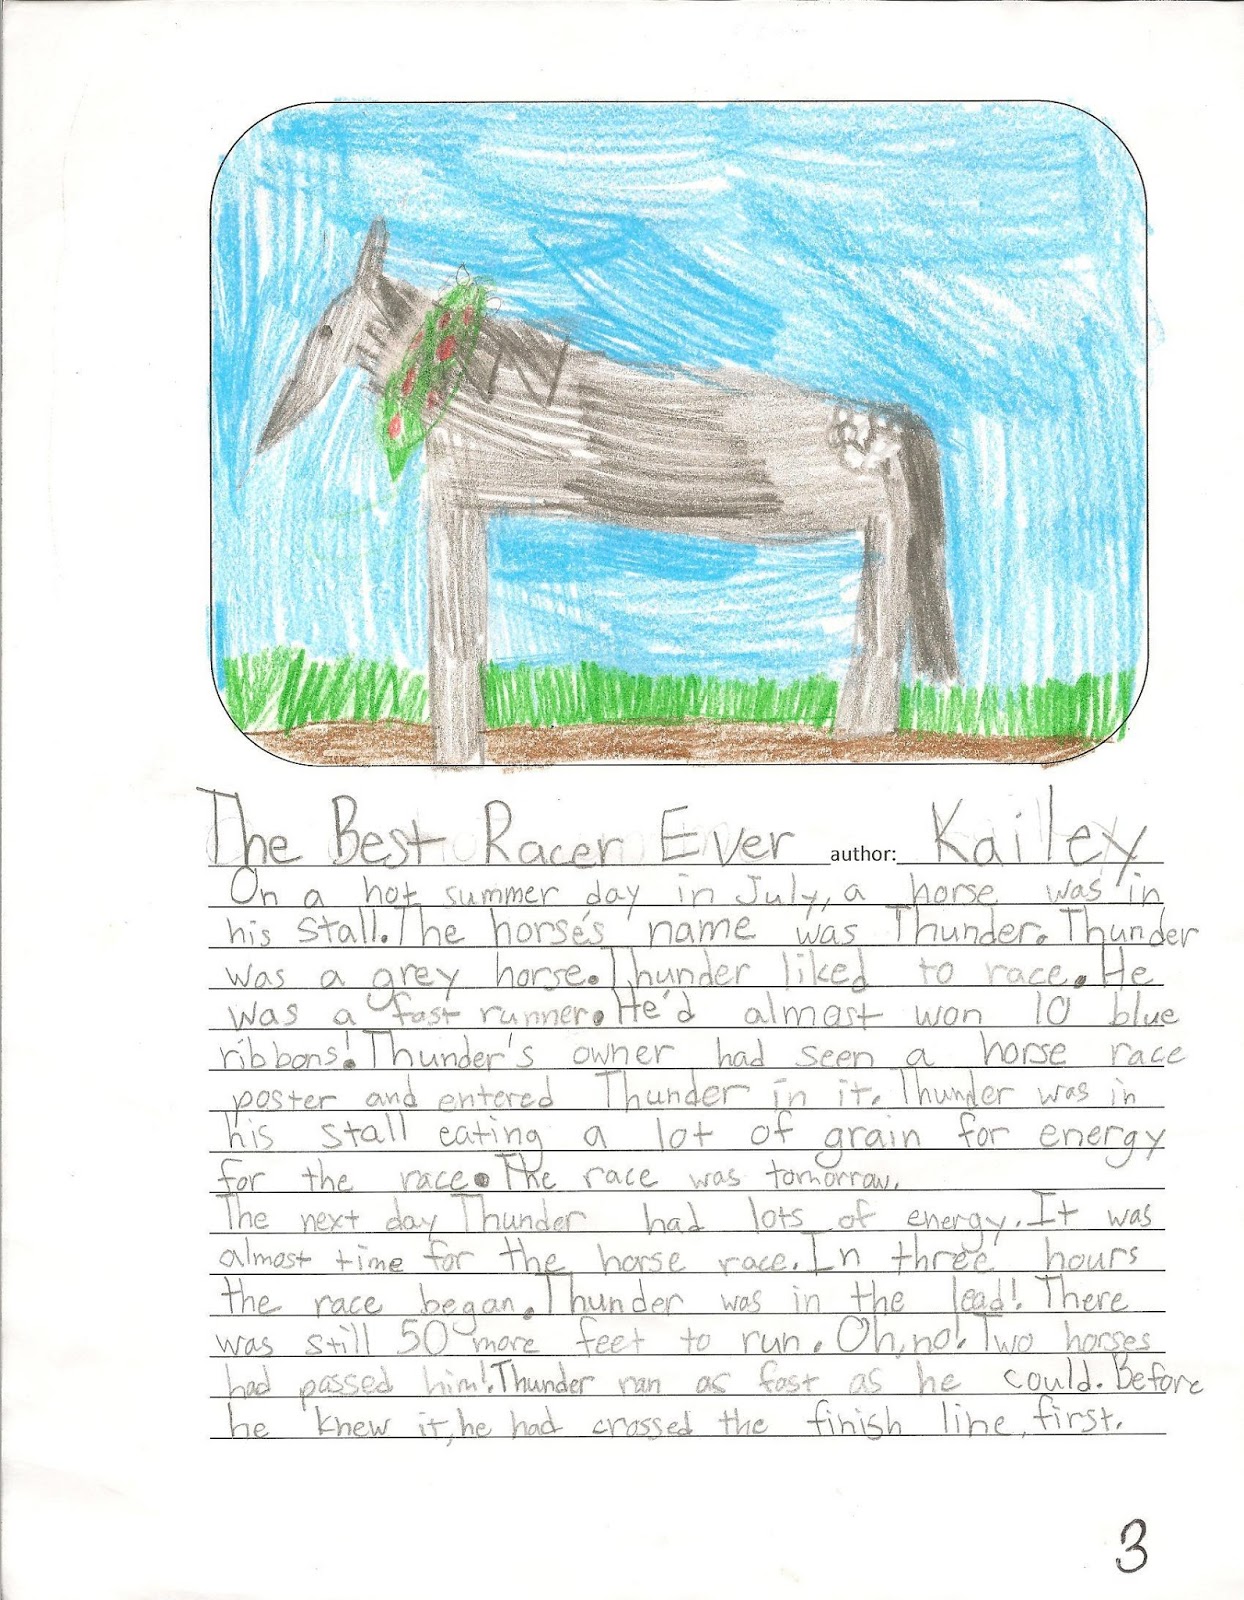 The Best Racer Ever author: Kailey
On a hot summer day in July, a horse was in
his stall. The horse's name was Thunder. Thunder
was a grey horse. Thunder liked to race. He
was a fast runner. He'd almost won 10 blue
ribbons! Thunder's owner had seen a horse race
poster and entered Thunder in it. Thunder was in
his stall eating a lot of grain for energy
for the race. The race was tomorrow.
The next day Thunder had lots of energy. It was
almost time for the horse race. In three hours
the race began. Thunder was in the lead! There
was still 50 more feet to run. Oh, no! Two horses
had passed him! Thunder ran as fast as he could. Before
he knew it, he had crossed the finish line, first.
3